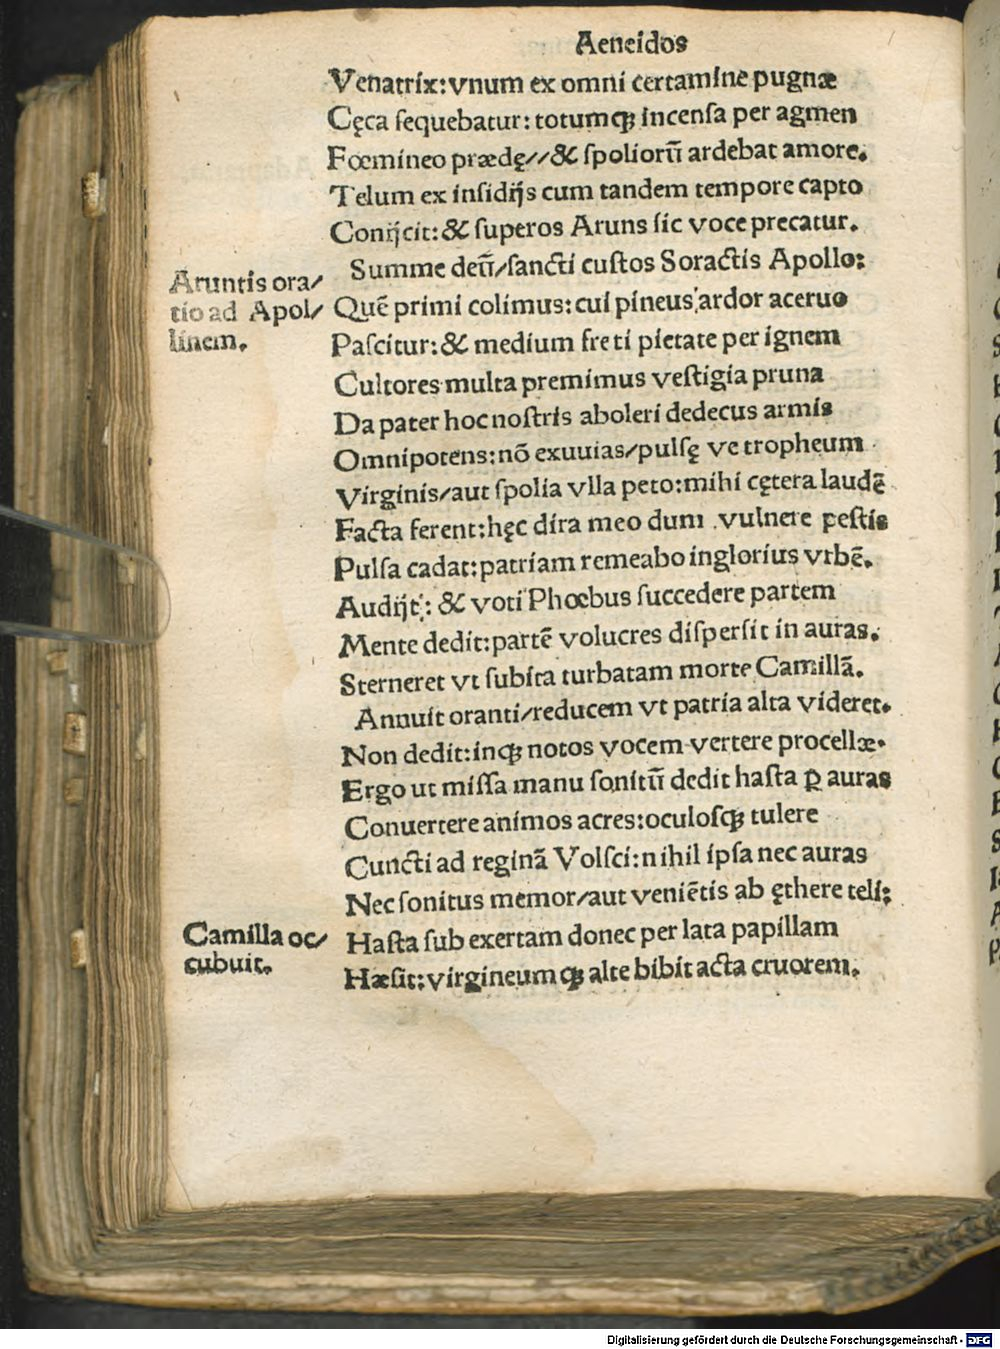 Aeneidos
Venatrix: vnum ex omni certamine pugnæ
Cęca ſequebatur: totumqꝫ incenſa per agmen
Fœmineo prædę//& ſpoliorū ardebat amore.
Telum ex inſidijs cum tandem tempore capto
Conijcit: & ſuperos Aruns ſic voce precatur.
Summe deū/ſancti cuſtos Soractis Apollo:
Quē primi colimus: cui pineus ardor aceruo
Paſcitur: & medium freti pietate per ignem
Cultores multa premimus veſtigia pruna
Da pater hoc noſtris aboleri dedecus armis
Omnipotens: nō exuuias/pulſę ve tropheum
Virginis/aut ſpolia vlla peto: mihi cętera laudē
Facta ferent: hęc dira meo dum vulnere peſtis
Pulſa cadat: patriam remeabo inglorius vrbē.
Audijt: & voti Phœbus ſuccedere partem
Mente dedit: partē volucres diſperſit in auras.
Sterneret vt ſubita turbatam morte Camillā.
Annuit oranti/reducem vt patria alta videret.
Non dedit: inqꝫ notos vocem vertere procellæ.
Ergo ut miſſa manu ſonitū dedit haſta ꝑ auras
Conuertere animos acres: oculoſqꝫ tulere
Cuncti ad reginā Volſci: nihil ipſa nec auras
Nec ſonitus memor/aut veniētis ab ęthere teli:
Haſta ſub exertam donec per lata papillam
Hæſit: virgineumqꝫ alte bibit acta cruorem.
Aruntis ora/
tio ad Apol/
linem.
Camilla oc/
cubuit.
Digitalisierung gefördert durch die Deutsche Forschungsgemeinschaft - DFG